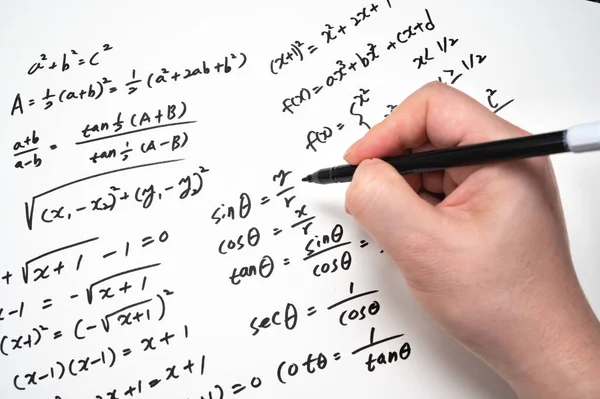 a²+b²=c²
A = ½(a+b)² = ½(a²+2ab+b²)
(a+b)/(a-b) = (tan ½(A+B))/(tan ½(A-B))
√((x₁-x₂)²+(y₁-y₂)²)
+ √(x+1) - 1 = 0
x-1 = -√(x+1)
(x-1)² = (-√(x+1))²
(x-1)(x-1) = x+1
x+1 = x+1
= 0
(x+1)² = x²+2x+1
f(x) = ax³+bx²+cx+d
f(x) = { x²
x< 1/2
≥ 1/2
sinθ = y/r
cosθ = x/r
tanθ = sinθ/cosθ =
secθ = 1/cosθ
cotθ = 1/tanθ